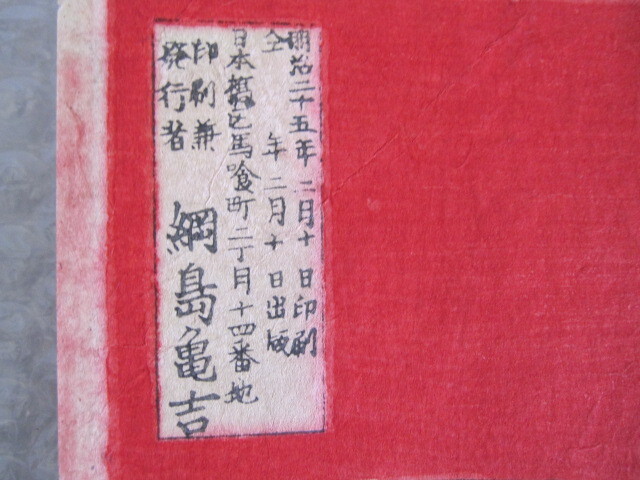 明治二十五年二月十日印刷
仝年二月十日出版
日本橋区馬喰町二丁目十四番地
印刷兼
発行者
綱島亀吉